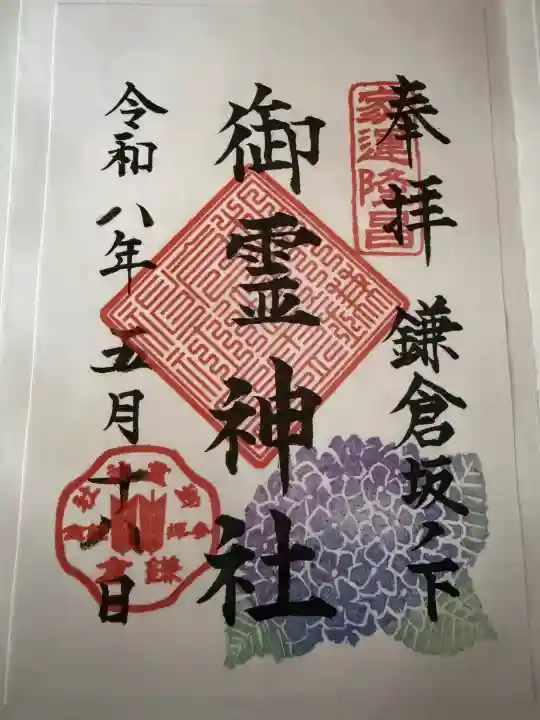 奉拝 鎌倉坂ノ下
家運隆昌
御霊神社
令和八年五月十八日
鎌倉